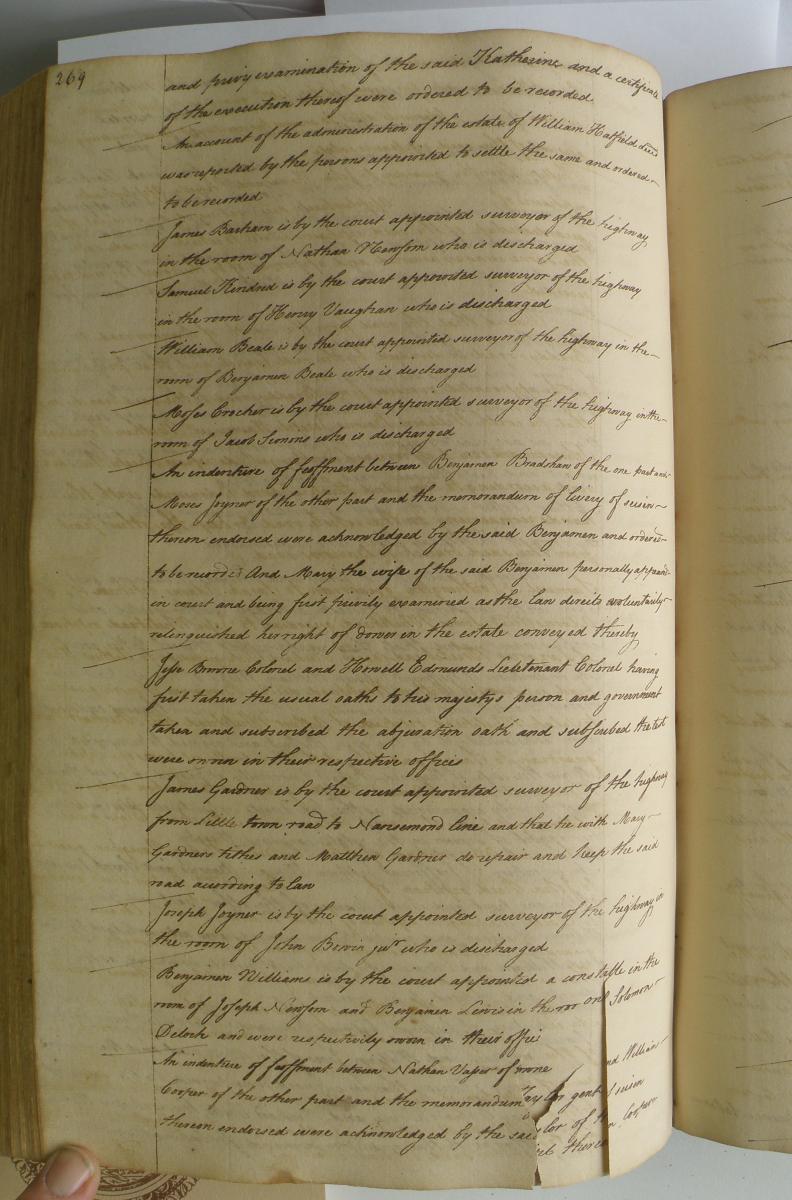 269
and privy examination of the said Katherine and a certificate
of the execution thereof were ordered to be recorded
An account of the administration of the estate of William Hatfield decd
was reported by the persons appointed to settle the same and ordered
to be recorded
James Barham is by the court appointed surveyor of the highway
in the room of Nathan Newsom who is discharged
Samuel Kindred is by the court appointed surveyor of the highway
in the room of Henry Vaughan who is discharged
William Beale is by the court appointed surveyor of the highway in the
room of Benjamen Beale who is discharged
Moses Crocher is by the court appointed surveyor of the highway in the
room of Jacob Simons who is discharged
An indenture of feoffment between Benjamen Bradshaw of the one part and
Moses Joyner of the other part and the memorandum of livery of seisin
thereon endorsed were acknowledged by the said Benjamen and ordered
to be recorded And Mary the wife of the said Benjamen personally appeard
in court and being first privily examined as the law directs voluntarily
relinquished her right of dower in the estate conveyed thereby
Jesse Browne Colonel and Howell Edmunds Lieutenant Colonel having
first taken the usual oaths to his majestys person and government
taken and subscribed the abjuration oath and subscribed the test
were sworn in their respective offices
James Gardner is by the court appointed surveyor of the highway
from Little town road to Nansemond line and that he with Mary
Gardners tithes and Matthew Gardner do repair and keep the said
road acording to law
Joseph Joyner is by the court appointed surveyor of the highway in
the room of John Bowin junr who is discharged
Benjamen Williams is by the court appointed a constable in the
room of Joseph Newsom and Benjamen Lewis in the roo Solomon
Deloch and were respectively sworn in their offi
An indenture of feoffment between Nathan Vaser of nd William
Cooper of the other part and the memorandum seisin
thereon endorsed were acknowledged by the said Cooper
gent
lor of th